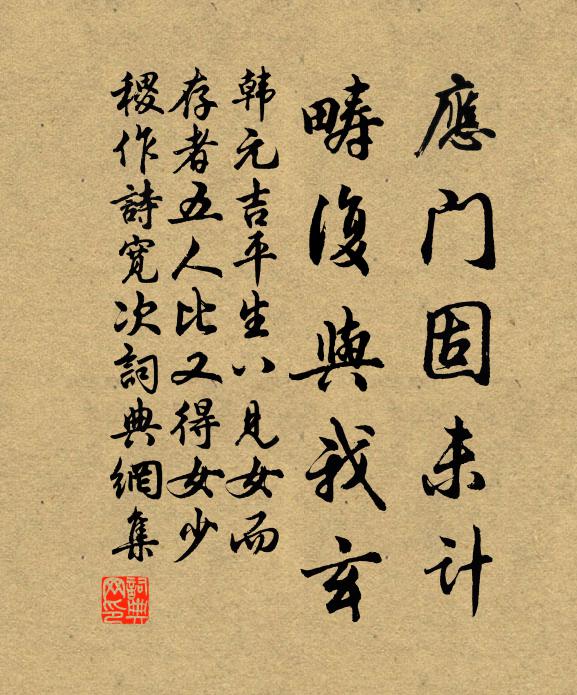 應門固未計
疇復與我玄
韩元吉平生八見女而
存者五人比又得女少
稷作詩寬次詞典網集
詞典網印